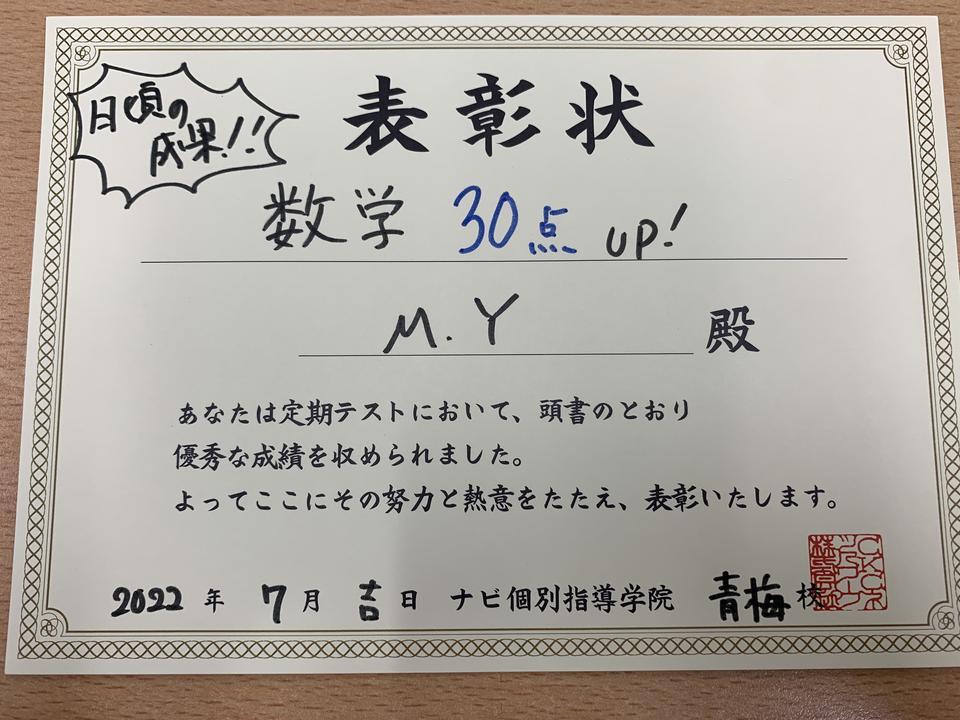 日頃の
成果!!
表彰状
数学 30点 UP!
M.Y 殿
あなたは定期テストにおいて、頭書のとおり
優秀な成績を収められました。
よってここにその努力と熱意をたたえ、表彰いたします。
2022年 7月 吉日 ナビ個別指導学院 青梅校